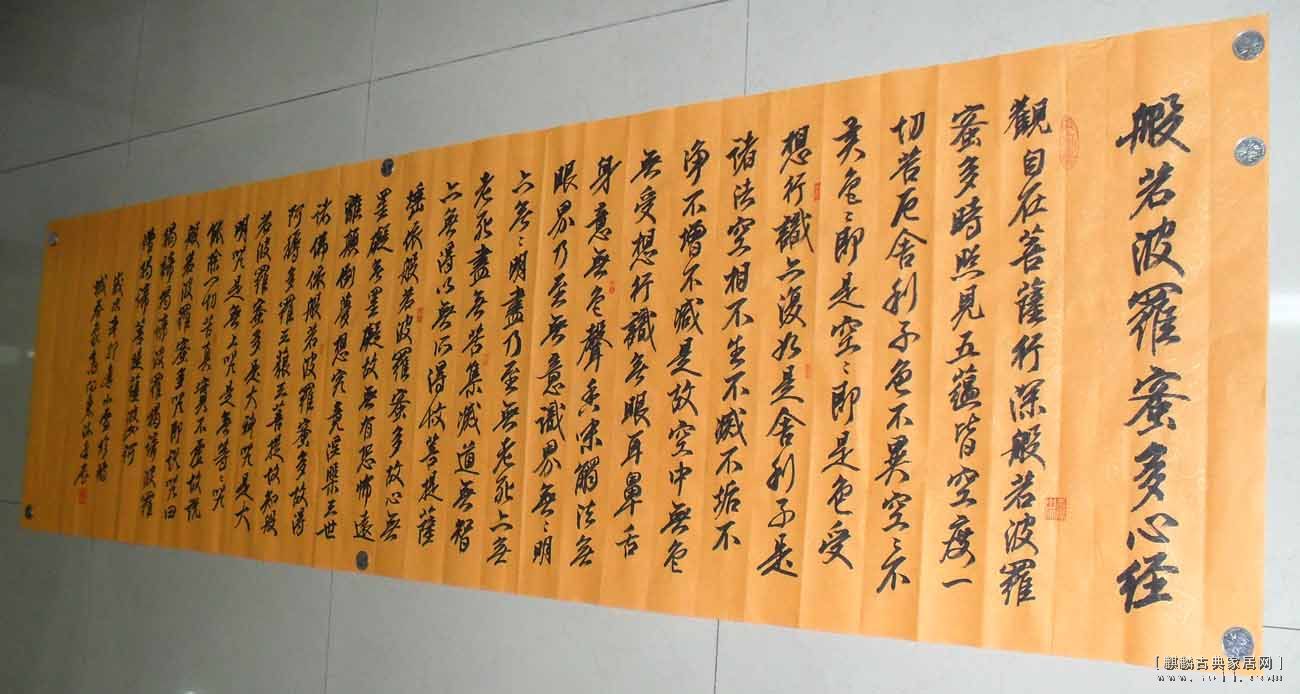 般若波羅蜜多心经
觀自在菩薩行深般若波羅
蜜多時照見五蘊皆空度一
切苦厄舍利子色不異空〻不
異色〻即是空〻即是色受
想行識亦復如是舍利子是
諸法空相不生不滅不垢不
净不增不减是故空中無色
無受想行識無眼耳鼻舌
身意無色聲香味觸法無
眼界乃至無意識界無〻明
亦無〻明盡乃至無老死亦無
老死盡無苦集滅道無智
亦無得以無所得故菩提薩
埵依般若波羅蜜多故心無
罣礙無罣礙故無有恐怖遠
離顛倒夢想究竟涅槃三世
诸佛依般若波羅蜜多故得
阿耨多羅三藐三菩提故知般
若波羅蜜多是大神咒是大
明咒是無上咒是無等〻咒
能除一切苦真實不虚故說
般若波羅蜜多咒即說咒曰
揭諦揭諦波羅揭諦波羅
僧揭諦菩提薩婆訶
歲次辛卯
[麒麟古典家居网]